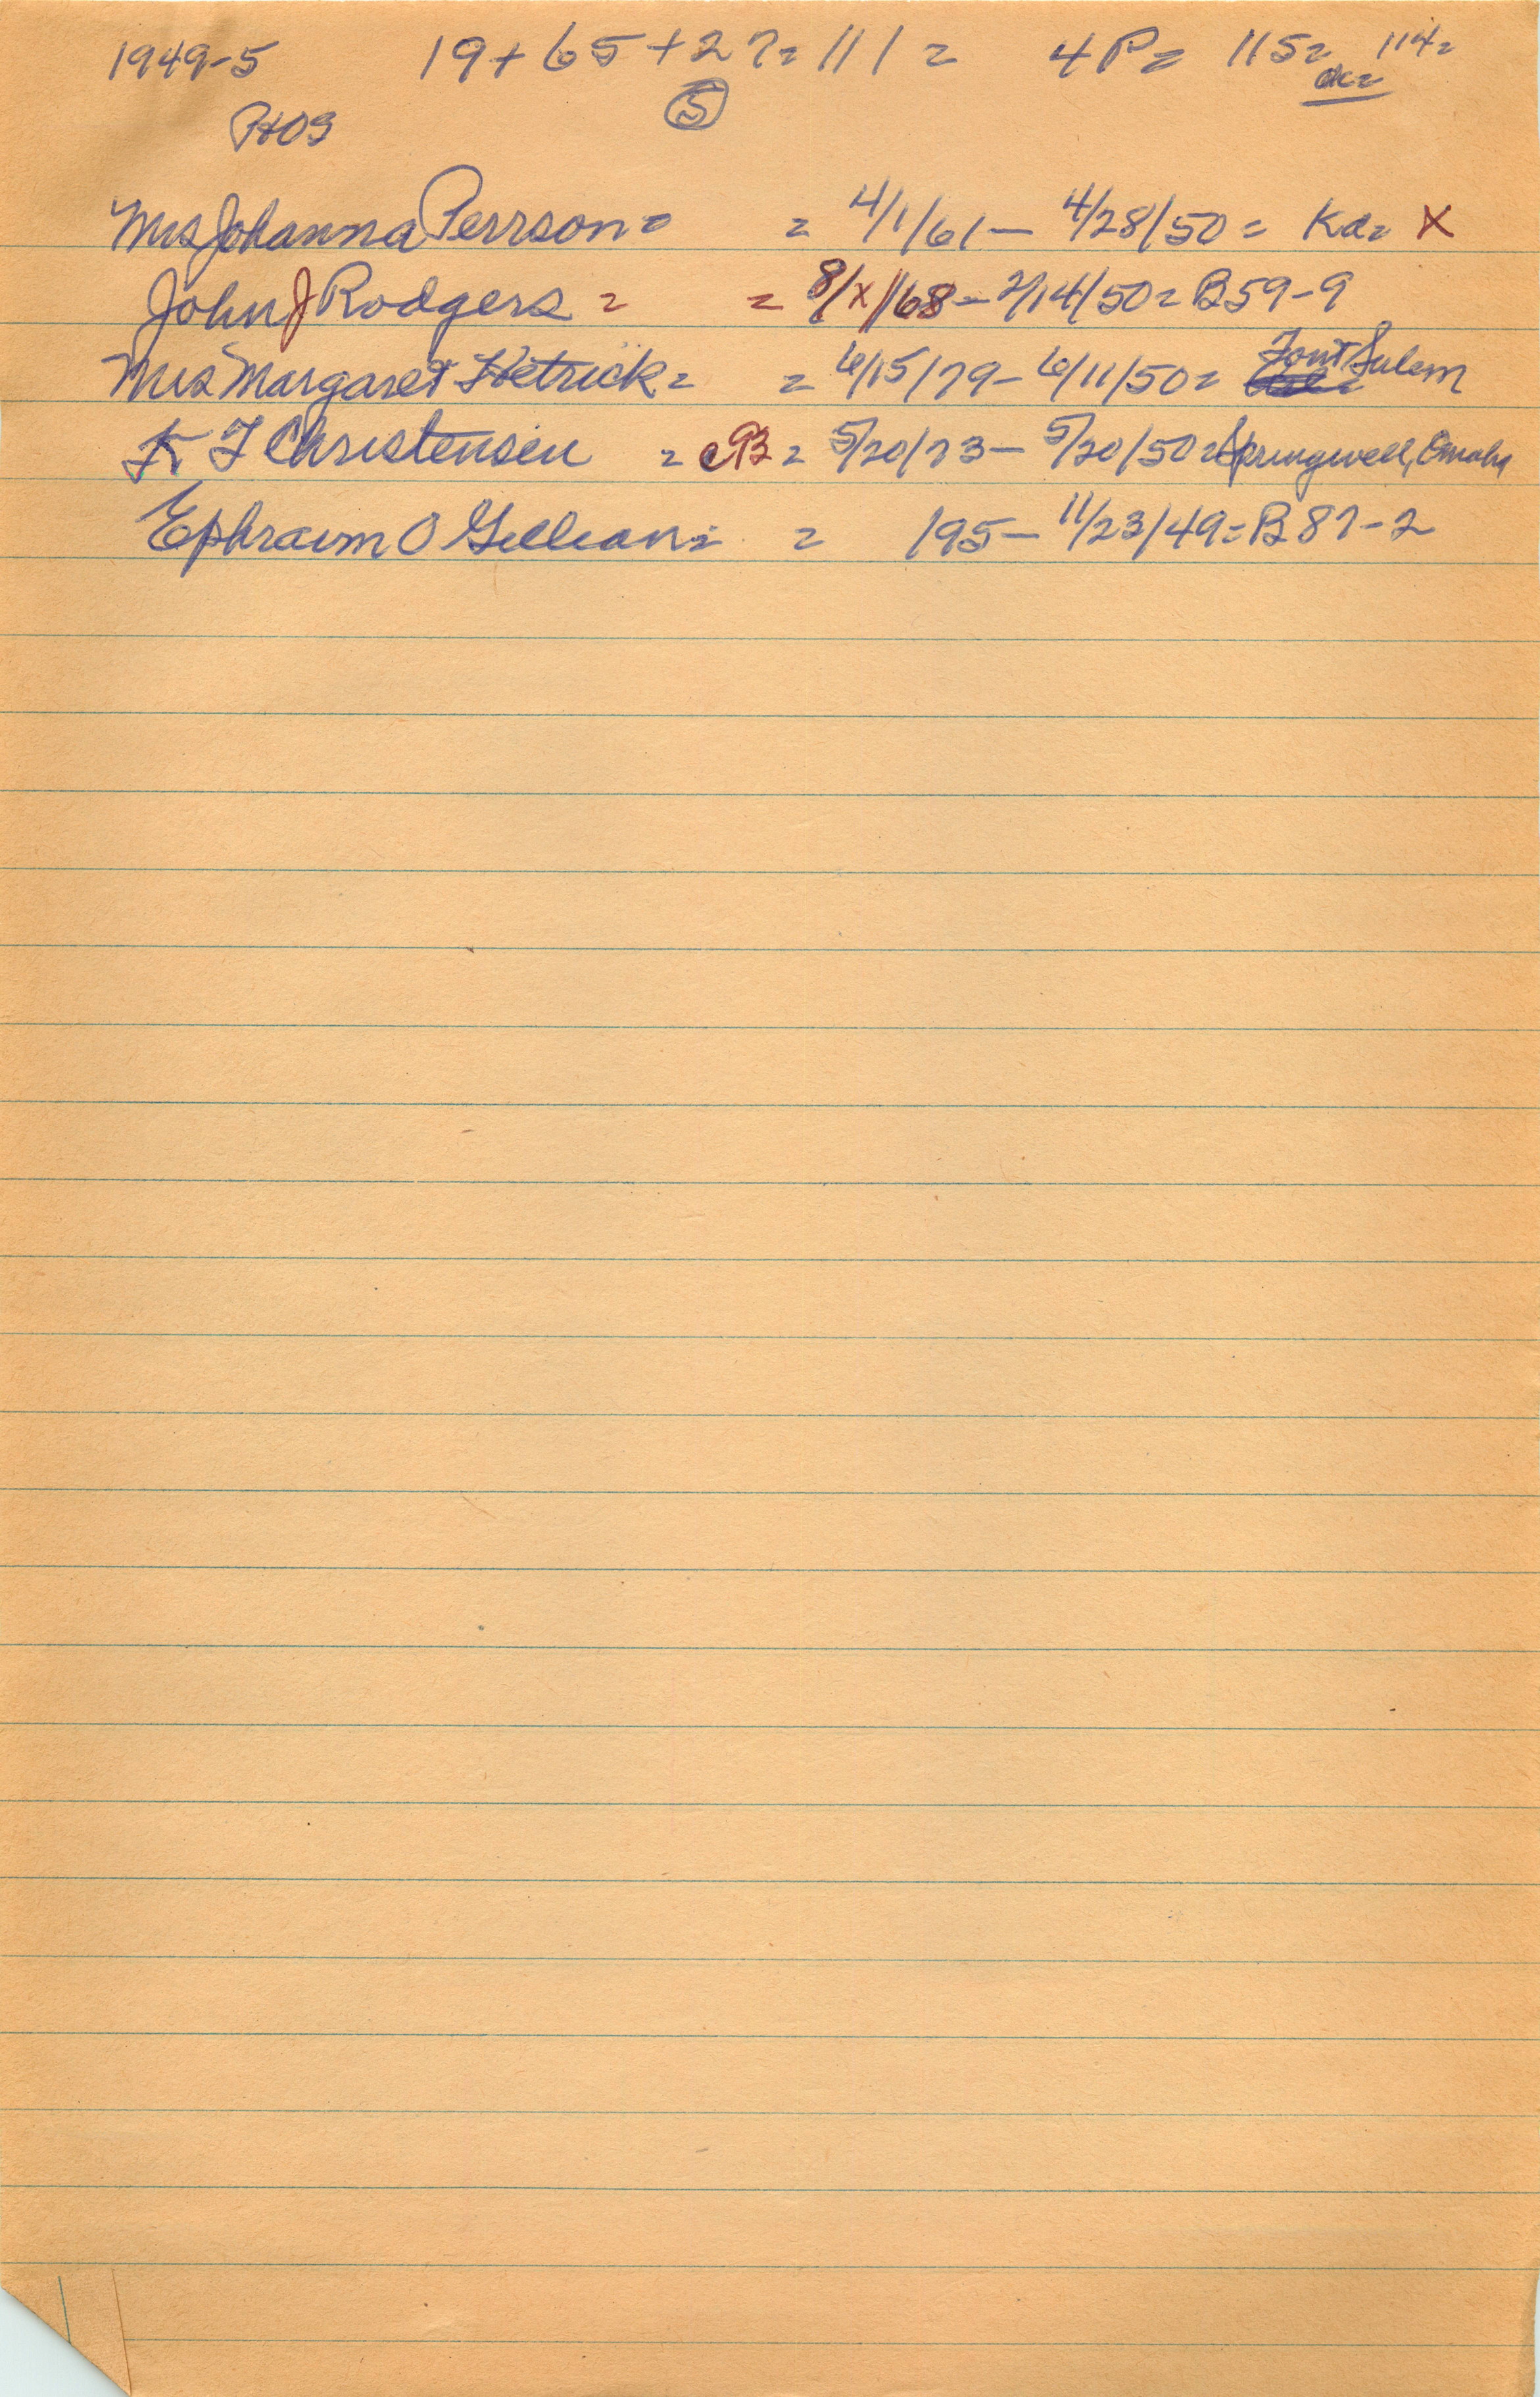 1949-5 19+65+27=111= 4P= 115= 114=
ok=
5
Mrs Johanna Perrson= = 4/1/61- 4/28/50= Ka= X
John J Rodgers = = 8/x/68- 2/14/50= B59-9
Mrs Margaret Hetrick= = 6/15/79- 6/11/50= Font Sulem
K F Christensen = = 5/20/73- 5/20/50= Springwell, Omaha
Ephraim O Gillian= = 195- 11/23/49= B87-2